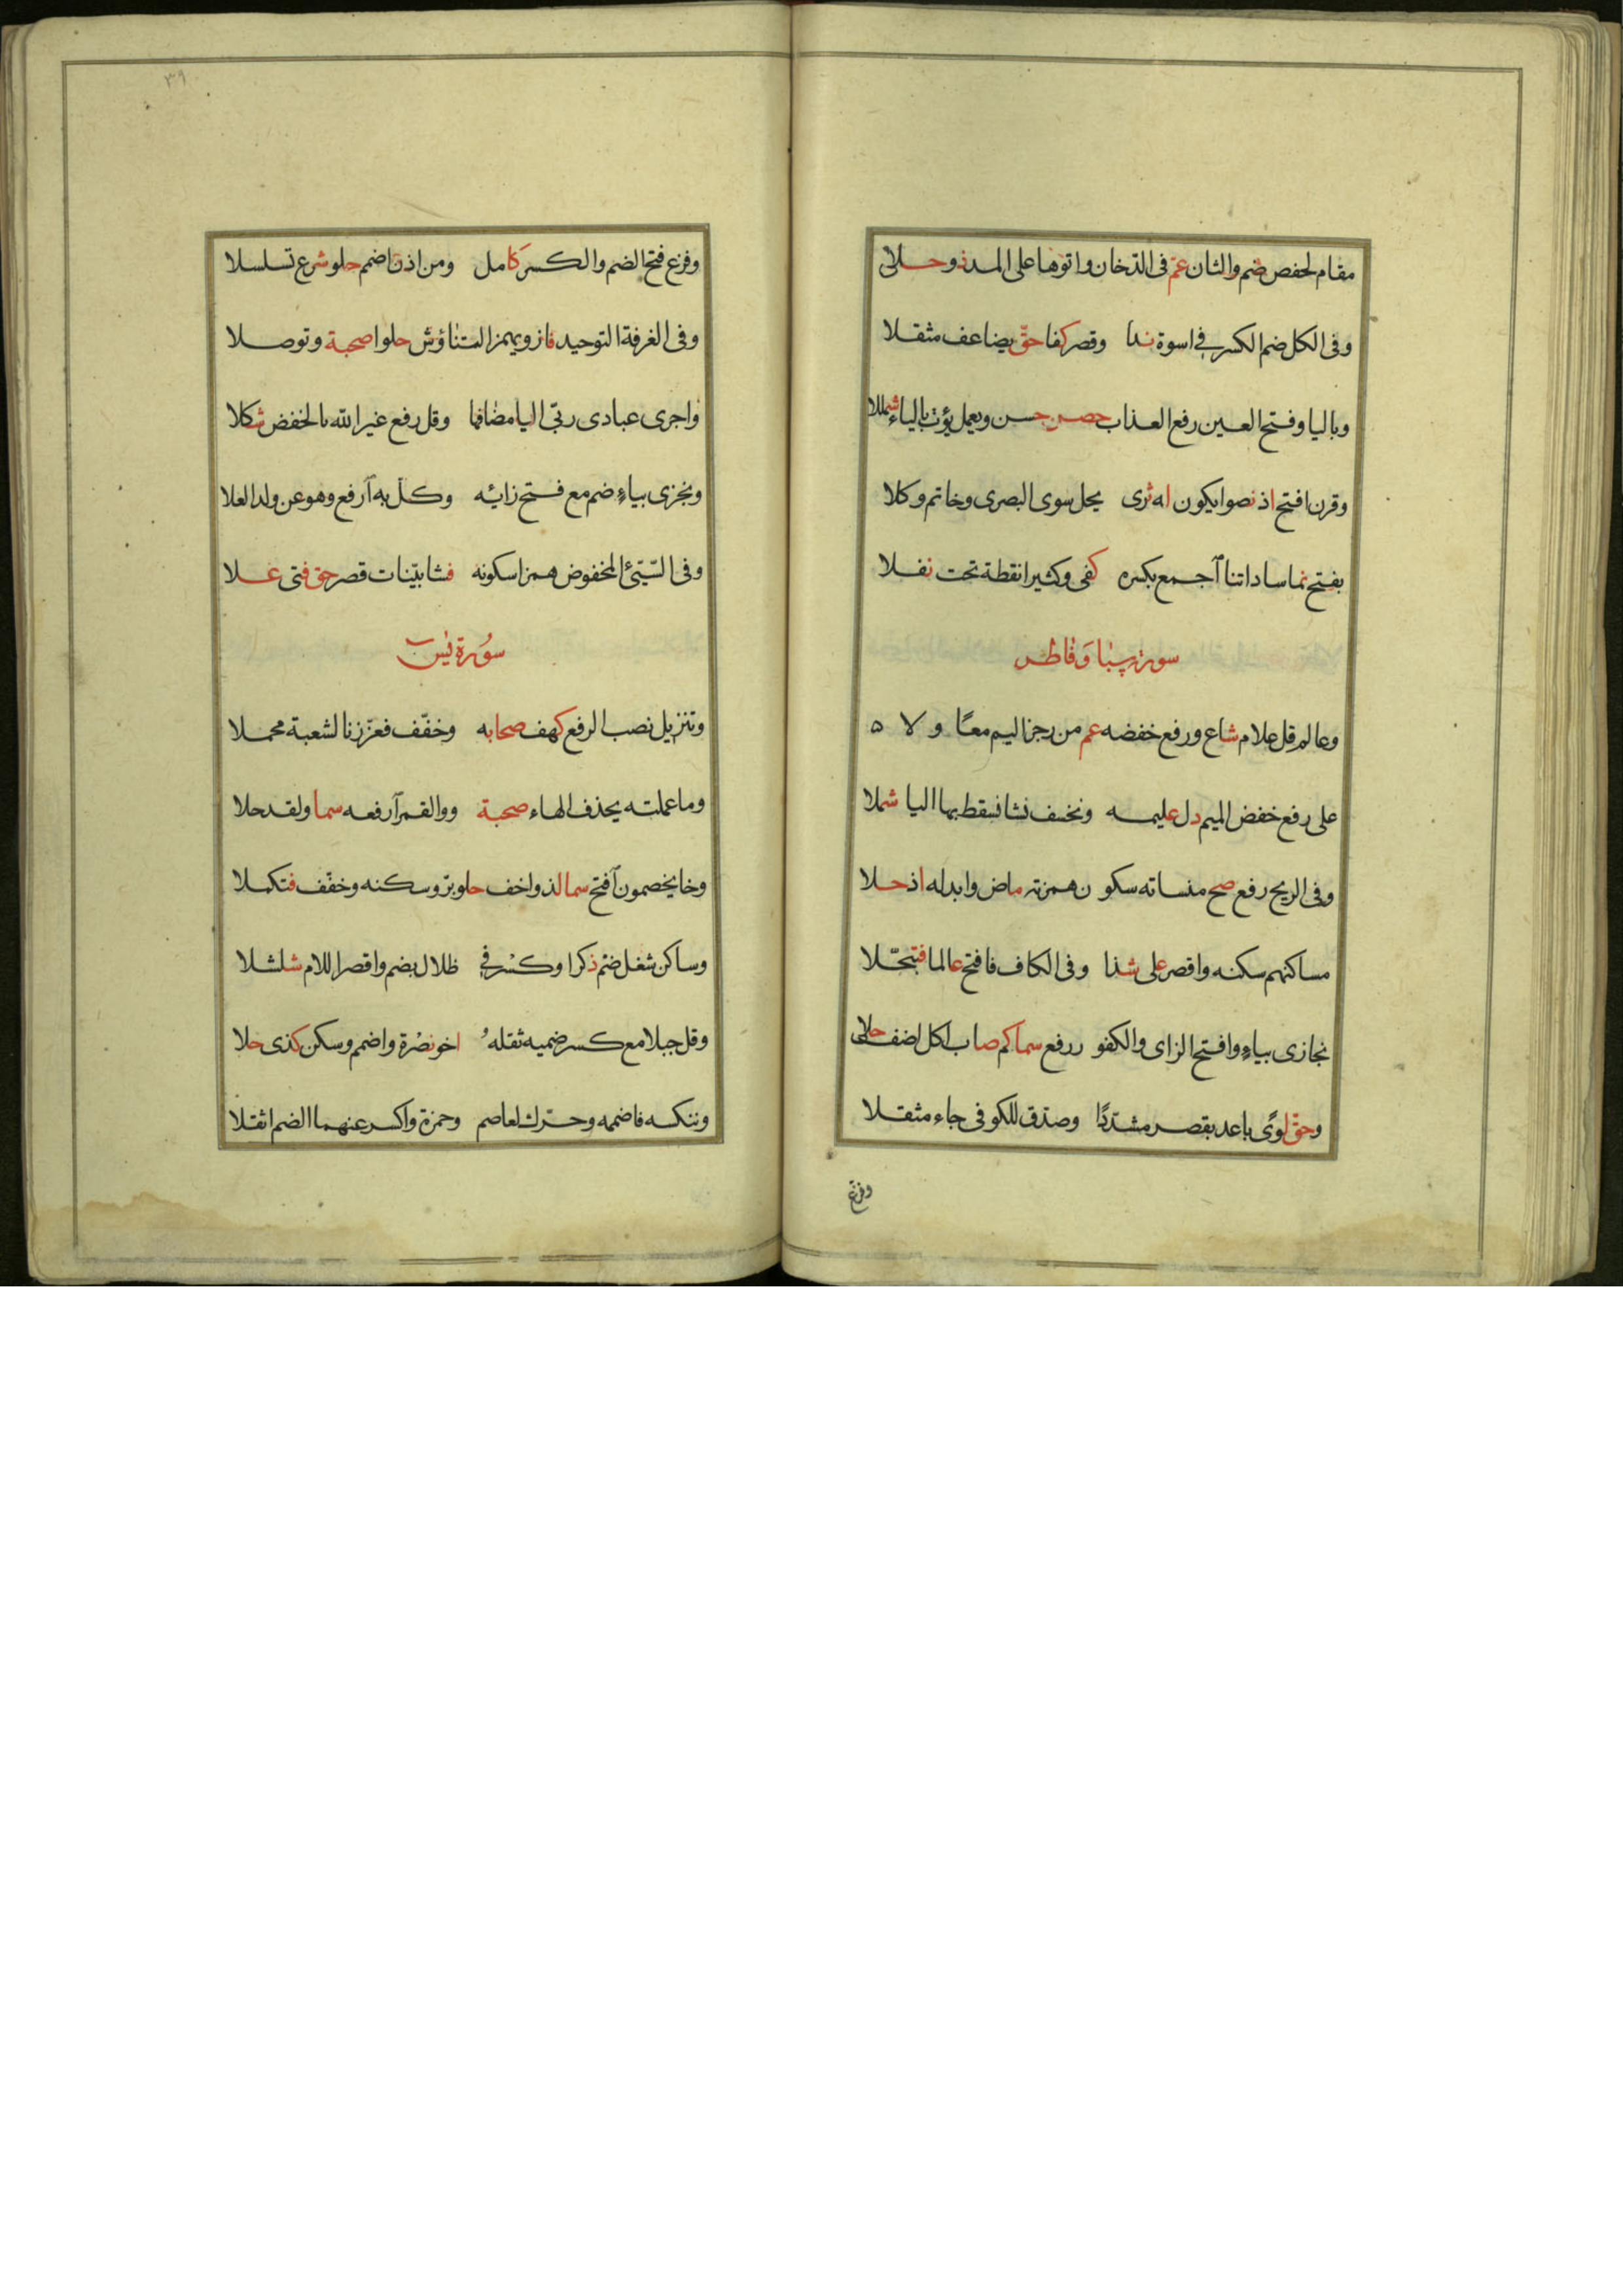 مقام لحفص ضم والثان عمّ فى الدخان واتوها على المد ذو حلا
وفى الكل ضم الكسر فى اسوة ندا وقصر كفا حقّ يضاعف مثقلا
وباليا وفتح العين رفع العذاب حصن حسن ويعمل يؤت بالياء شمللا
وقرن افتح اذ نصوا يكون له ثرى يحل سوى البصرى وخاتم وكلا
بفتح نما ساداتنا آجمع بكسره كفى وكثيرا نقطة تحت نفلا
سورة سبا وفاطر
وعالم قل علام شاع ورفع خفضه عم من رجز اليم معًا ولا ه
على رفع خفض الميم دل عليمه ونخسف نشا نسقط بها اليا شملا
وفى الريح رفع صح منساته سكو ن همزته ماض وابدله اذ حلا
مساكنهم سكنه واقصر على شذا وفى الكاف فافتح عالما فتبجّلا
نجازى بياءٍ وافتح الزاى والكفو ر رفع سما كم صاب اكل اضف حلى
وحقّ لوًى باعد بقصر مشدّدًا وصدّق للكوفى جاء مثقلا
وفزع
٣٩
وفزع فتح الضم والكسر كامل ومن اذن اضمم حلو شرع تسلسلا
وفى الغرفة التوحيد فاز ويهمز التناؤش حلوا صحبة وتوصلا
واجرى عبادى ربّى اليا مضافها وقل رفع غير الله بالخفض شكلا
ونجزى بياءٍ ضم مع فتح زائه وكل به آرفع وهو عن ولد العلا
وفى السّيئ المخفوض همزا سكونه فشا بيّنات قصر حق فتى علا
سُورة يٰسٓ
وتنزيل نصب الرفع كهف صحابه وخفّف فعزّزنا لشعبة محملا
وما عملته يحذف الهاء صحبة ووالقمر آرفعه سما ولقد حلا
وخا يخصمون آفتح سما لذ واخف حلو برّ وسكنه وخفّف فتكملا
وساكن شغل ضم ذكرا وكسر فى ظلال بضم واقصر اللام شلشلا
وقل جبلا مع كسر ضميه ثقله اخو نصرة واضمم وسكن كذى حلا
وننكسه فاضممه وحرّك لعاصم وحمزة واكسر عنهما الضم اثقلا